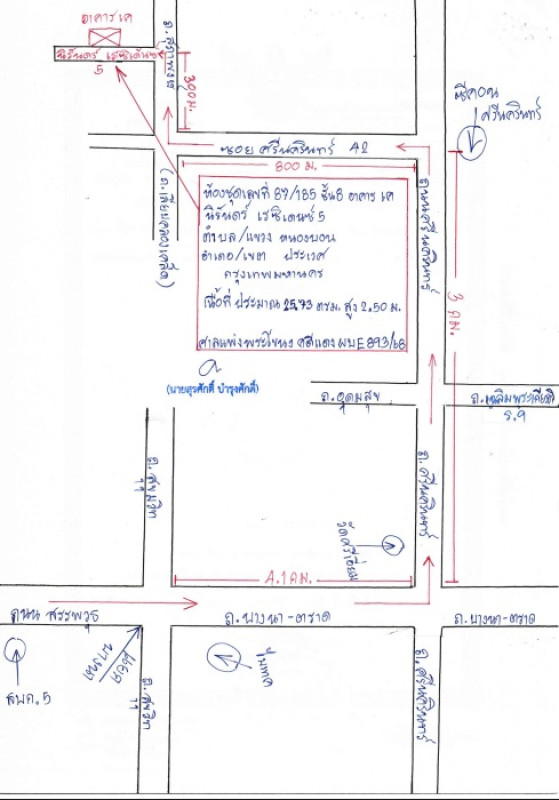 อาคาร เค
นิรันดร์ เรซิเดนซ์
5
ถ.สุภาพงษ์
300 ม.
ซอย ศรีนครินทร์ 42
800 ม.
ซีคอน
ศรีนครินทร์
(ถ.เลียบคลองเคล็ด)
ห้องชุดเลขที่ 89/185 ชั้น 8 อาคาร เค
นิรันดร์ เรซิเดนซ์ 5
ตำบล/แขวง หนองบอน
อำเภอ/เขต ประเวศ
กรุงเทพมหานคร
เนื้อที่ ประมาณ 25.73 ตรม. สูง 2.50 ม.
ศาลแพ่งพระโขนง คดีแดง ผบE893/68
ถนนศรีนครินทร์
3 กม.
(นายสุรศักดิ์ บำรุงศักดิ์)
ถ.อุดมสุข
ถ.เฉลิมพระเกียรติ
ร.9
ถ.สุขุมวิท
ถ.ศรีนครินทร์
วัดศรีเอี่ยม
4.1 กม.
ถนน สรรพาวุธ
ถ.บางนา-ตราด
ถ.บางนา-ตราด
สบค.5
แยก
บางนา
ถ.สุขุมวิท
ถ.ศรีนครินทร์